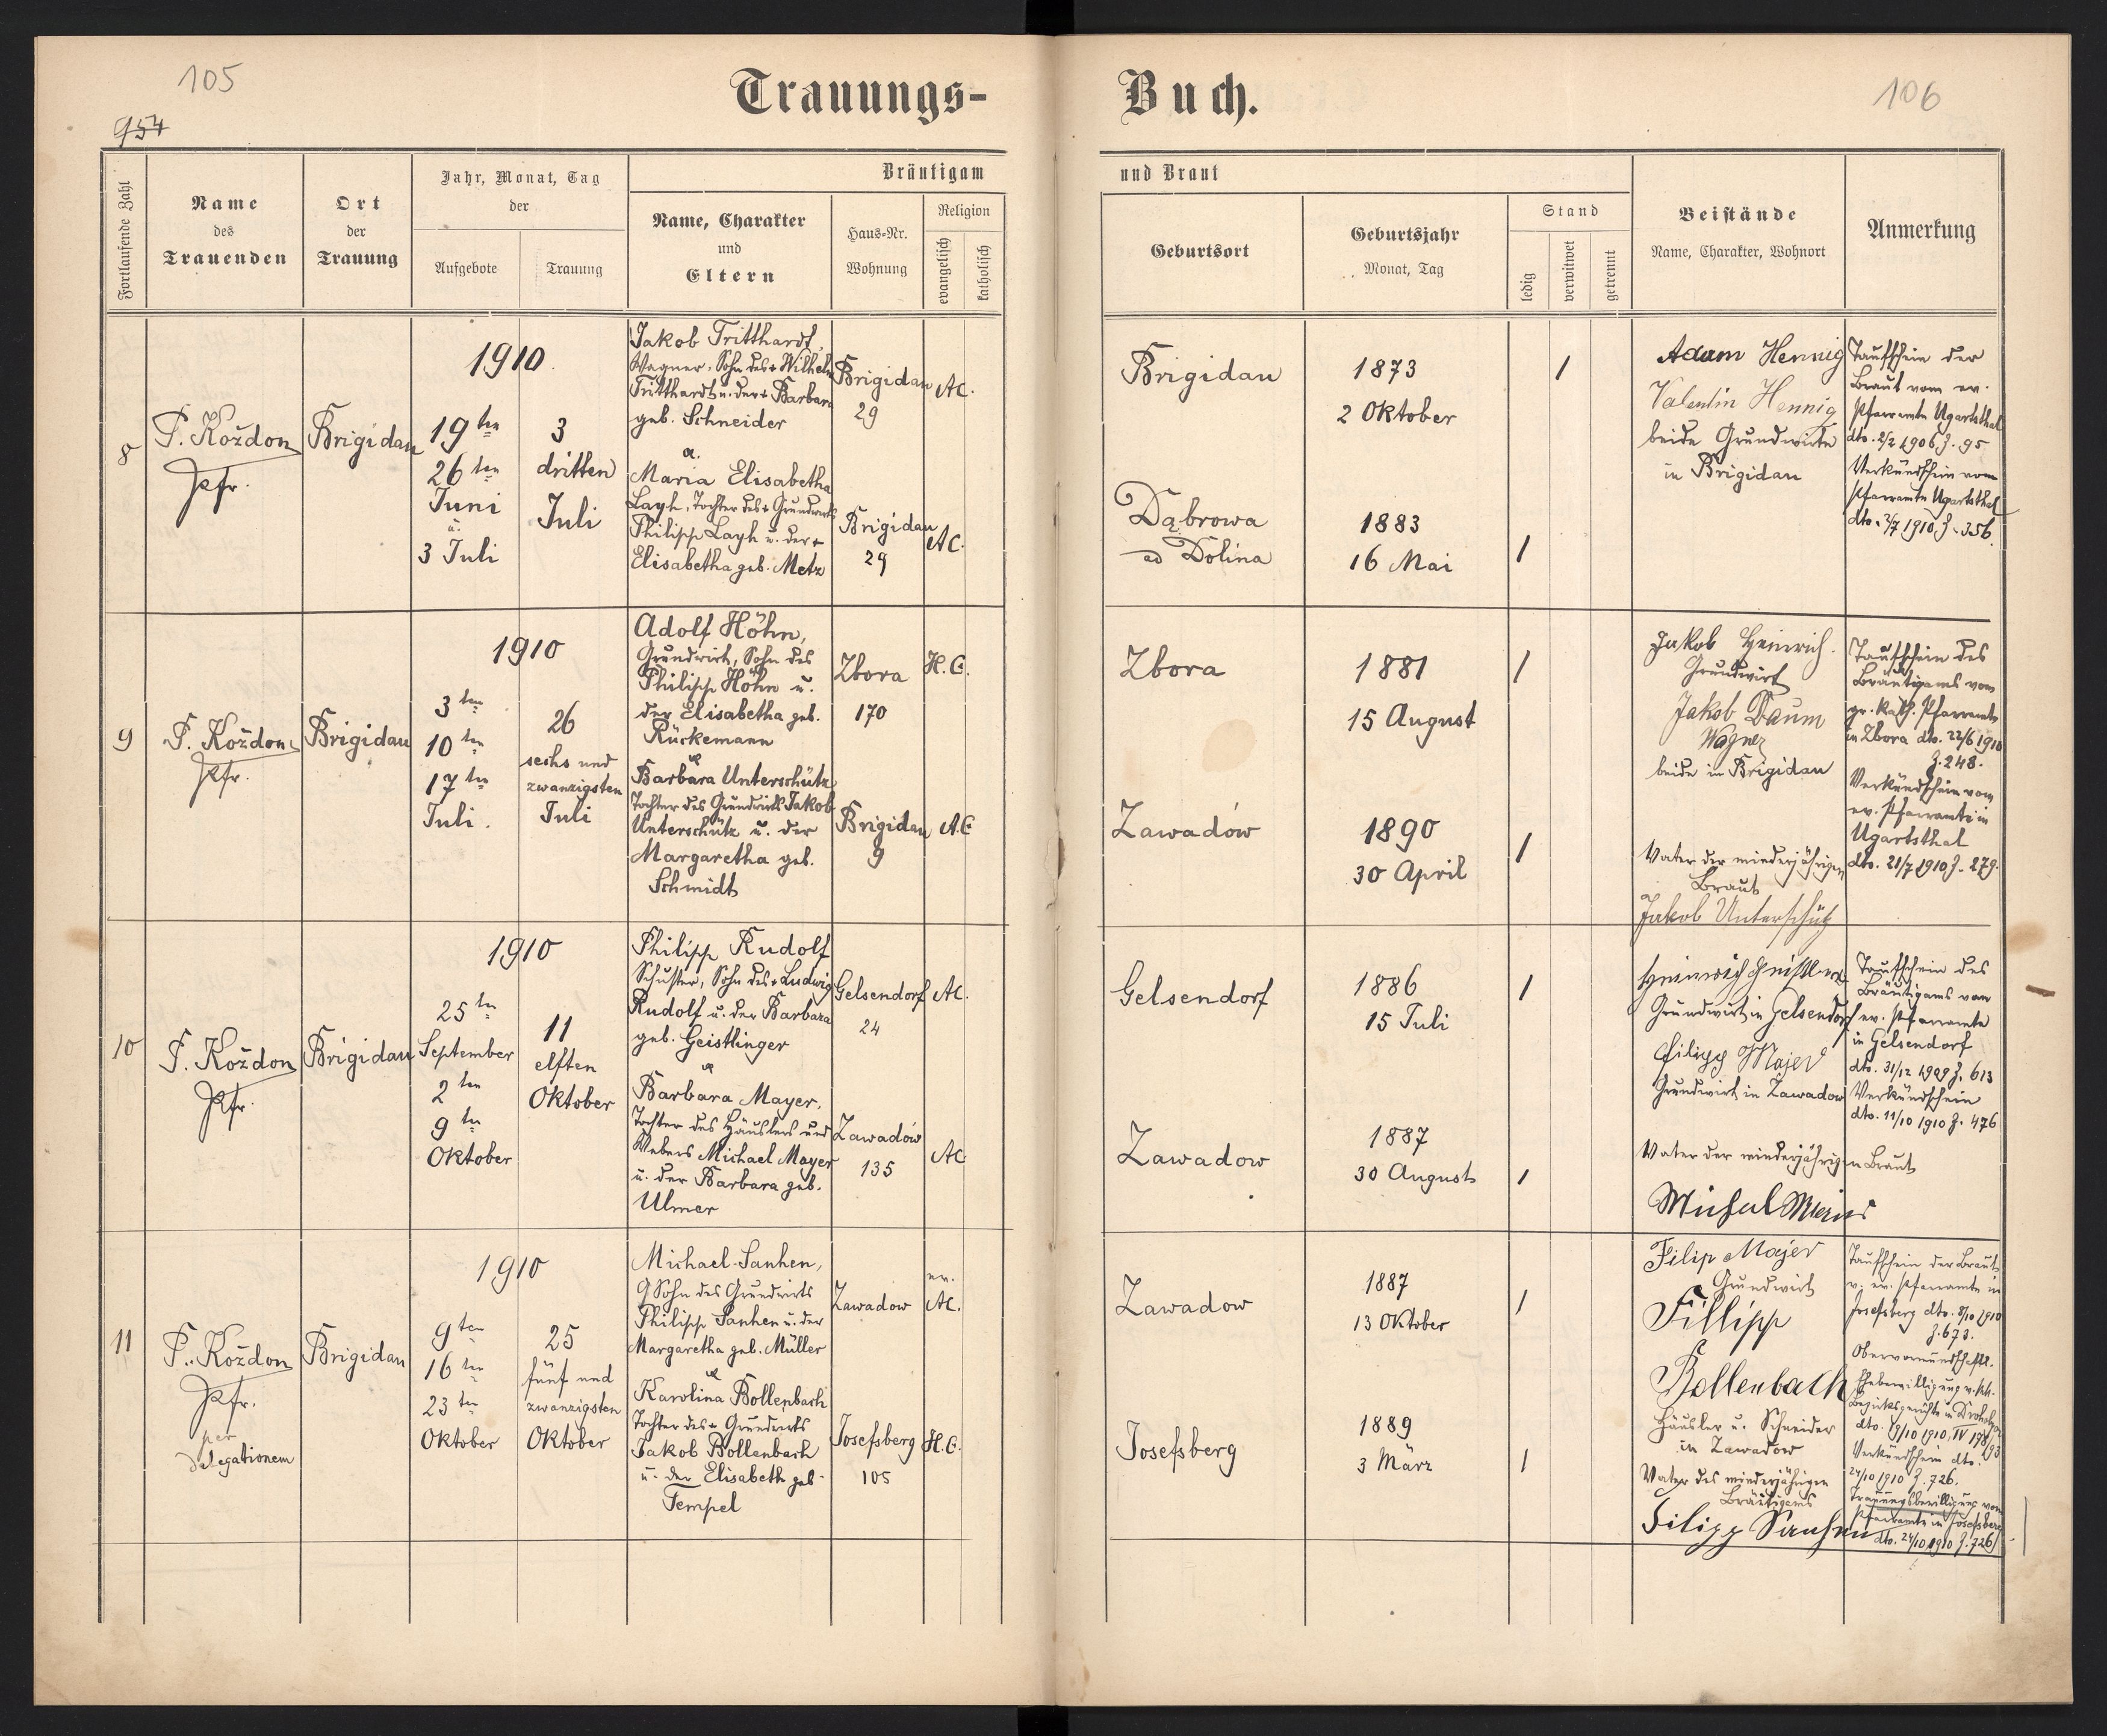 105
954
Trauungs-
Buch.
106
Fortlaufende Zahl
Name
des
Trauenden
Ort
der
Trauung
Jahr, Monat, Tag
der
Aufgebote
Trauung
Bräutigam
Name, Charakter
und
Eltern
Haus-Nr.
Wohnung
Religion
evangelisch
katholisch
und Braut
Geburtsort
Geburtsjahr
Monat, Tag
Stand
ledig
verwitwet
getrennt
Beistände
Name, Charakter, Wohnort
Anmerkung
8
P. Koždon
Pfr.
Brigidau
1910
19ten
26ten
Juni
u.
3 Juli
3
dritten
Juli
Jakob Tritthardt,
Wagner, Sohn des + Wilhelm
Tritthardt u. der + Barbara
geb. Schneider
u.
Maria Elisabetha
Layh, Tochter des + Grundwirts
Philipp Layh u. der +
Elisabetha geb. Metz
Brigidau
29
AC.
Brigidau
29
AC.
Brigidau
1873
2 Oktober
/
Dąbrowa
ad Dolina
1883
16 Mai
/
Adam Hennig
Valentin Hennig
beide Grundwirte
in Brigidau
Taufschein der
Braut vom ev.
Pfarramte Ugartsthal
dto. 2/2 1906 Z. 95
Verkündschein vom
Pfarramte Ugartsthal
dto. 2/7 1910 Z. 256.
9
P. Koždon
Pfr.
Brigidau
1910
3ten
10ten
17ten
Juli.
26
sechs und
zwanzigsten
Juli
Adolf Höhn,
Grundwirt, Sohn des
Philipp Höhn u.
der Elisabetha geb.
Rückemann
u.
Barbara Unterschütz
Tochter des Grundwirts Jakob
Unterschütz u. der
Margaretha geb.
Schmidt
Zbora
170
H.C.
Brigidau
9
A.C
Zbora
1881
15 August
/
Zawadów
1890
30 April
/
Jakob Heinrich.
Grundwirt
Jakob Daum
Wagner
beide in Brigidau
Vater der minderjährigen
Braut
Jakob Unterschütz
Taufschein des
Bräutigams vom
gr. kath. Pfarramte
in Zbora dto. 22/6 1910
Z. 248.
Verkündschein vom
ev. Pfarramte in
Ugartsthal
dto. 21/7 1910 Z. 279.
10
P. Koždon
Pfr.
Brigidau
1910
25ten
September
2ten
9ten
Oktober
11
elften
Oktober
Philipp Rudolf
Schuster, Sohn des + Ludwig
Rudolf u. der Barbara
geb. Geistlinger
u.
Barbara Mayer,
Tochter des Häuslers und
Webers Michael Mayer
u. der Barbara geb.
Ulmer
Gelsendorf
24
AC.
Zawadów
135
AC
Gelsendorf
1886
15 Juli
/
Zawadow
1887
30 August
/
Grundwirt in Gelsendorf
Filipp Majer
Grundwirt in Zawadow
Vater der minderjährigen Braut
Taufschein des
Bräutigams vom
ev. Pfarramte
in Gelsendorf
dto. 31/12 1909 Z. 613
Verkündschein
dto. 11/10 1910 Z. 476
11
P. Koždon
Pfr.
per
delegationem
Brigidau
1910
9ten
16ten
23ten
Oktober
25
fünf und
zwanzigsten
Oktober
Michael Sanhen,
Sohn des Grundwirts
Philipp Sanhen u. der
Margaretha geb. Müller
u.
Karolina Bollenbach
Tochter des + Grundwirts
Jakob Bollenbach
u. der Elisabeth geb.
Tempel
Zawadow
ev.
AC.
Josefsberg
105
H.C.
Zawadow
1887
13 Oktober
/
Josefsberg
1889
3 März
/
Filip Majer
Grundwirt
Fillipp
Bollenbach
Häusler u. Schneider
in Zawadow
Vater des minderjährigen
Bräutigams
Filipp Sanhen
Taufschein der Braut
v. ev. Pfarramte in
Josefsberg dto. 8/10 1910
Z. 673.
Obervormundschaftl.
Ehebewilligung v. k.k.
Bezirksgerichte in
dto. 19/10 1910, IV
Verkündschein dto.
24/10 1910 Z. 726.
Trauungsbewilligung vom
Pfarramte in Josefsberg
dto. 24/10 1910 Z. 726